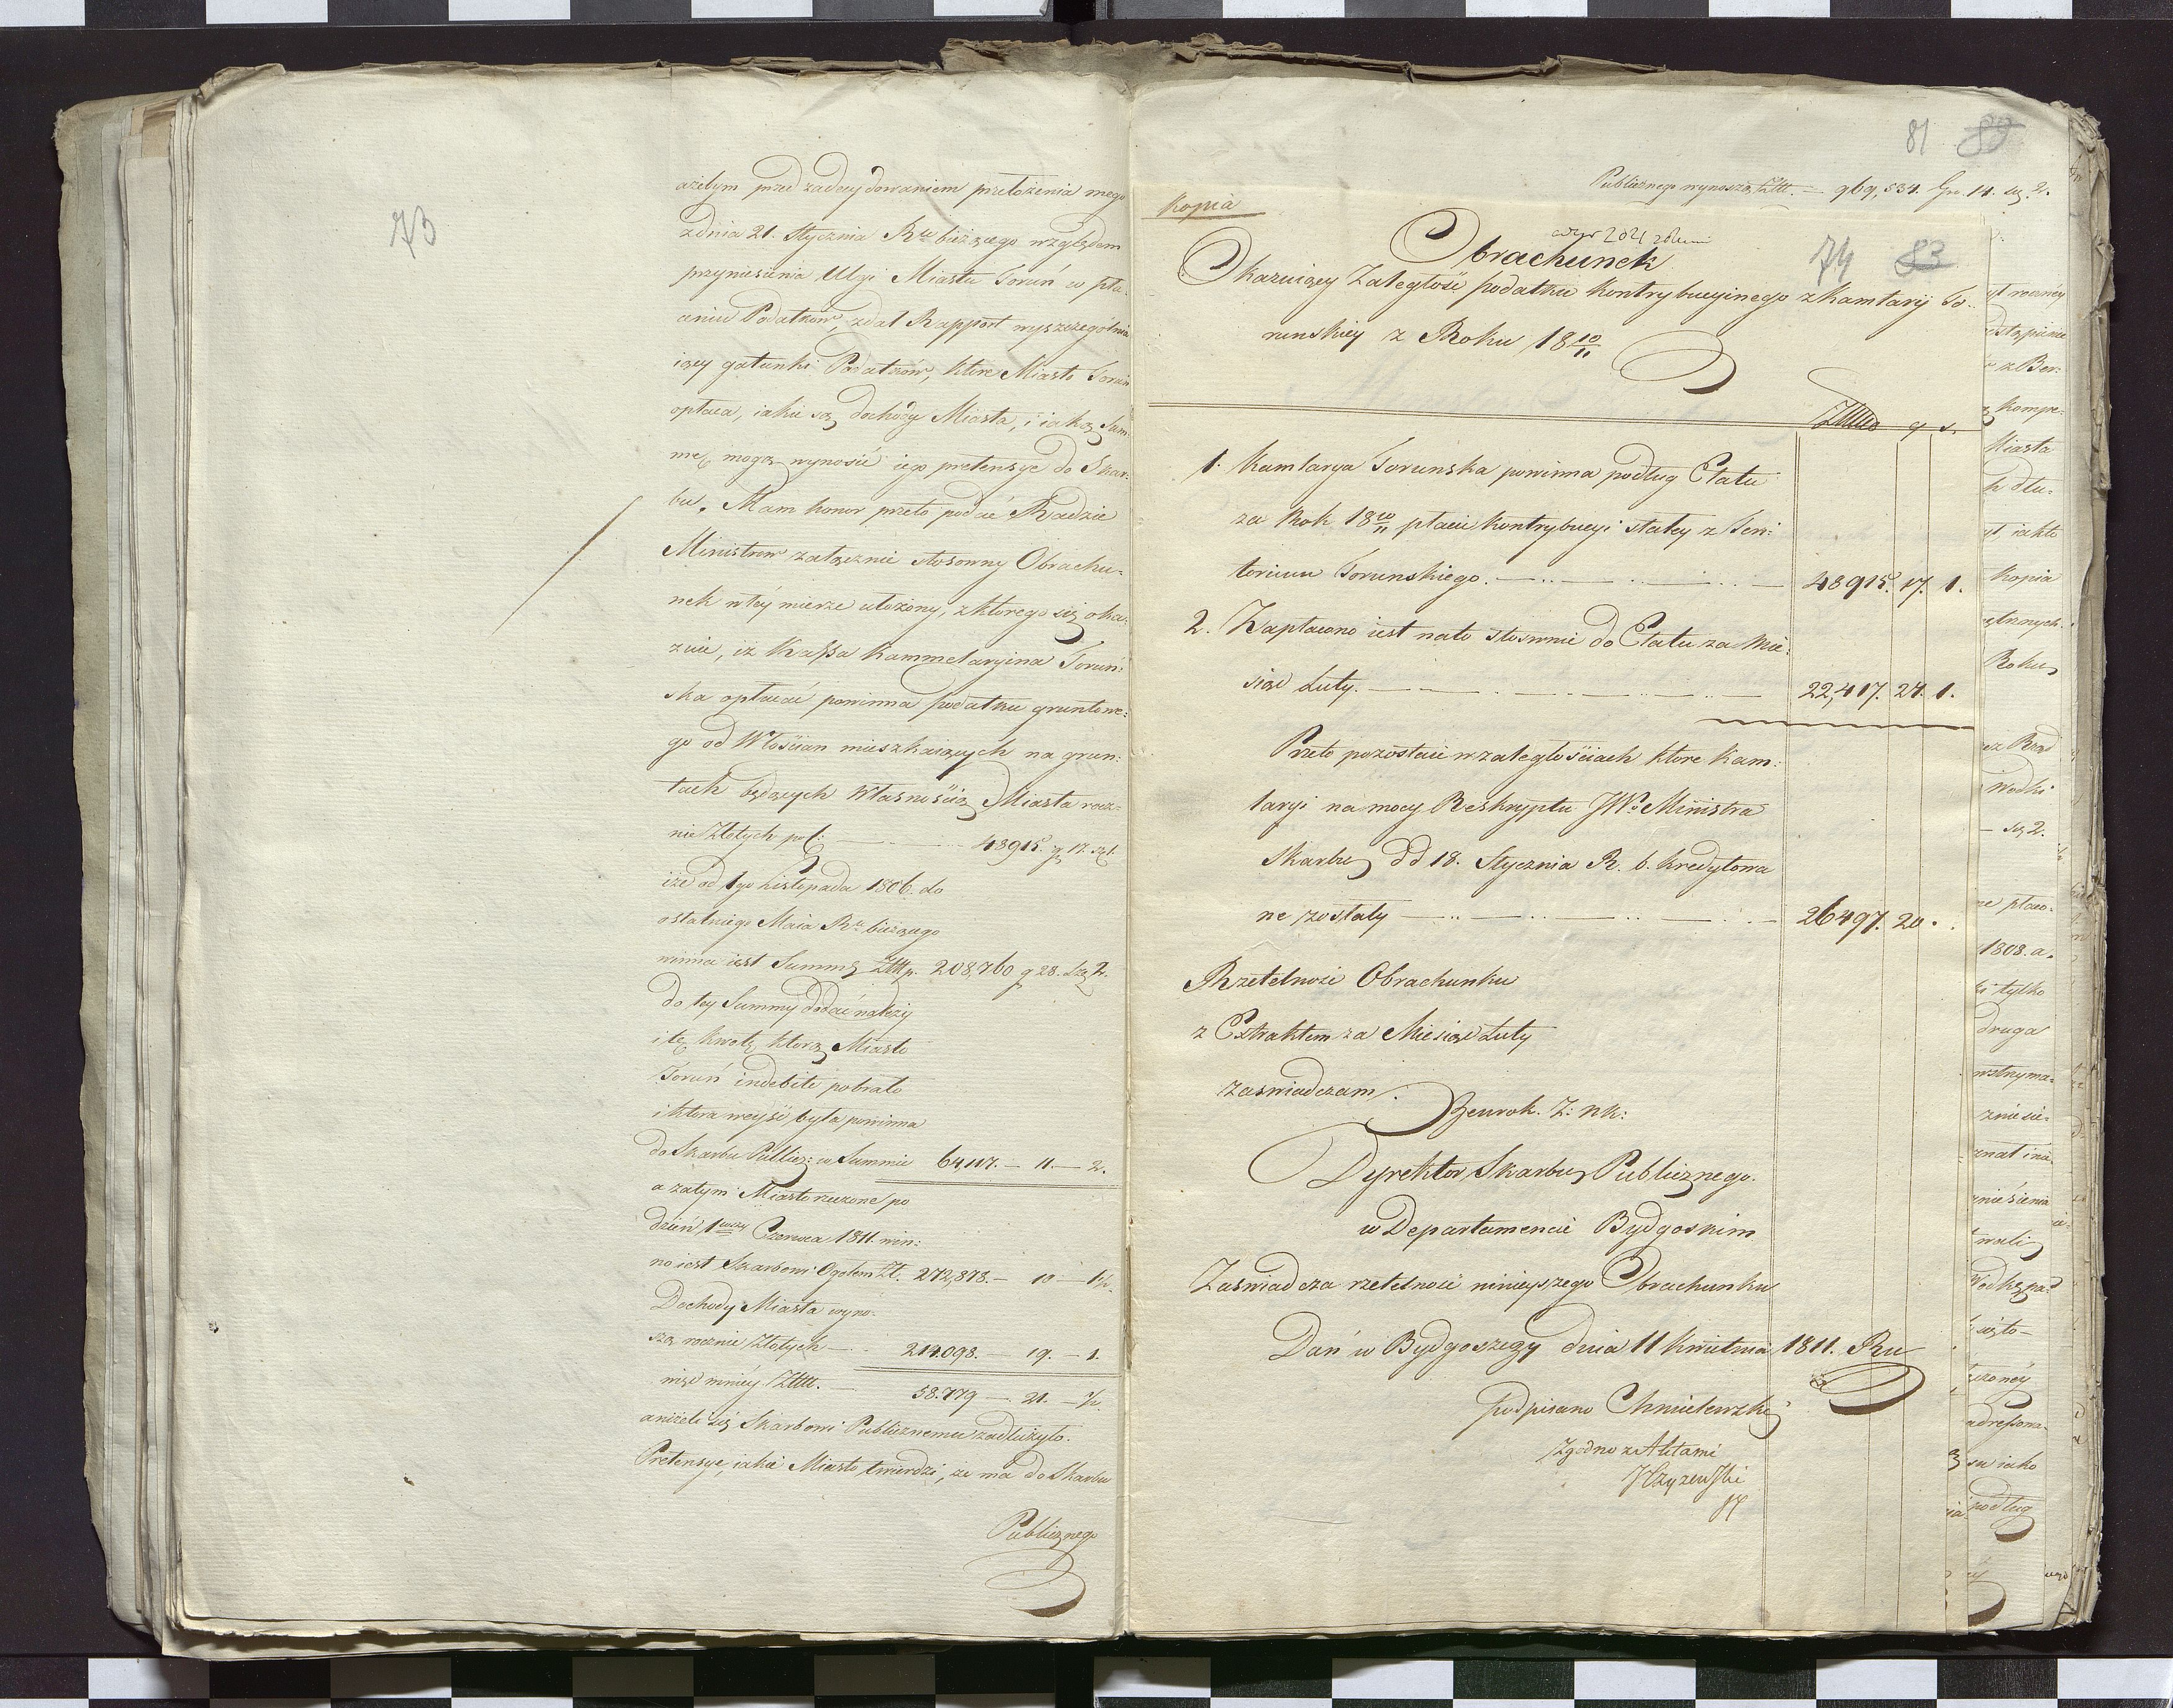 73
ażebym przed zadecydowaniem przełożenia mego
z dnia 21. Stycznia Ru bieżącego względem
przyniesienia Ulgi Miastu Toruń w pła-
ceniu Podatków, zdał Rapport wyszczególnia
iący gatunki Podatków, które Miasto Toruń
opłaca, iakie są dochody Miasta, i iaką Sum-
mę mogą wynosić iego pretensye do Skar-
bu. Mam honor przeto podać Radzie
Ministrów załącznie stosowny Obrachu-
nek w téy mierze ułożony, z którego się oka-
zuie, iż Kassa Kammelaryina Toruń-
ska opłacać powinna podatku gruntowe-
go od Włościan mieszkaiących na grun-
tach będących Własnością Miasta rocz-
nie Złotych pol: 48915. g 17. sz 1.
iże od 1go Listopada 1806. do
ostatniego Maia Ru bieżącego
winna iest Summę Złłp. 208,760 g 28. Sz 2.
do tey Summy dodać należy
i tę kwotę którą Miasto
Toruń indebite pobrało
i która weyść była powinna
do Skarbu Publicz: w Summie 64117. — 11. — 2.
a zatym Miasto rzeczone po
dzień 1wszy Czerwca 1811. win:
no iest Skarbowi Ogółem Zł. 272,878. — 10 — 1½.
Dochody Miasta wyno-
szą rocznie Złotych — 214.098. — 19. — 1.
więc mniéy Złłł. — 58.779 — 21. — ½.
aniżeli się Skarbowi Publicznemu zadłużyło.
Pretensye, iakie Miasto twierdzi, że ma do Skarbu
Publicznego
81 82
Publicznego wynoszą Złłł. — 969,534. Gr. 14. sz. 2.
Kopia
Obrachunek
74 83
Okazuiący Zaległość podatku kontrybucyinego z Kamlaryi To-
runskiey z Roku 18 10/11
Złłłł g s.
1. Kamlarya Torunska powinna podług Etatu
za Rok 18 10/11 płacić kontrybucyi stałey z Terri:
torium Torunskiego. — 48915. 17. 1.
2. Zapłacono iest na to stosownie do Etatu za Mie:
siąc Luty. — 22,417. 27. 1.
Przeto pozostaie w zaległościach które Kam:
laryi na mocy Reskryptu JWo Ministra
Skarbu dd 18. Stycznia R. b. kredytowa
ne zostały — 26497. 20. .
Rzetelność Obrachunku
z Extraktem za Miesiąc Luty
zaswiadczam.
Dyrektor Skarbu Publicznego.
w Departamencie Bydgoskim
Zaświadcza rzetelność ninieyszego Obrachunku
Dań w Bydgoszczy dnia 11 Kwietnia 1811. Ru
podpisano Chmielewski
Zgodno z Aktami
kompe-
Miasta
Kopia
Roku
Wodki
— sz 2.
1808. a.
tylko
druga
wstrzyma-
zniesie-
podług